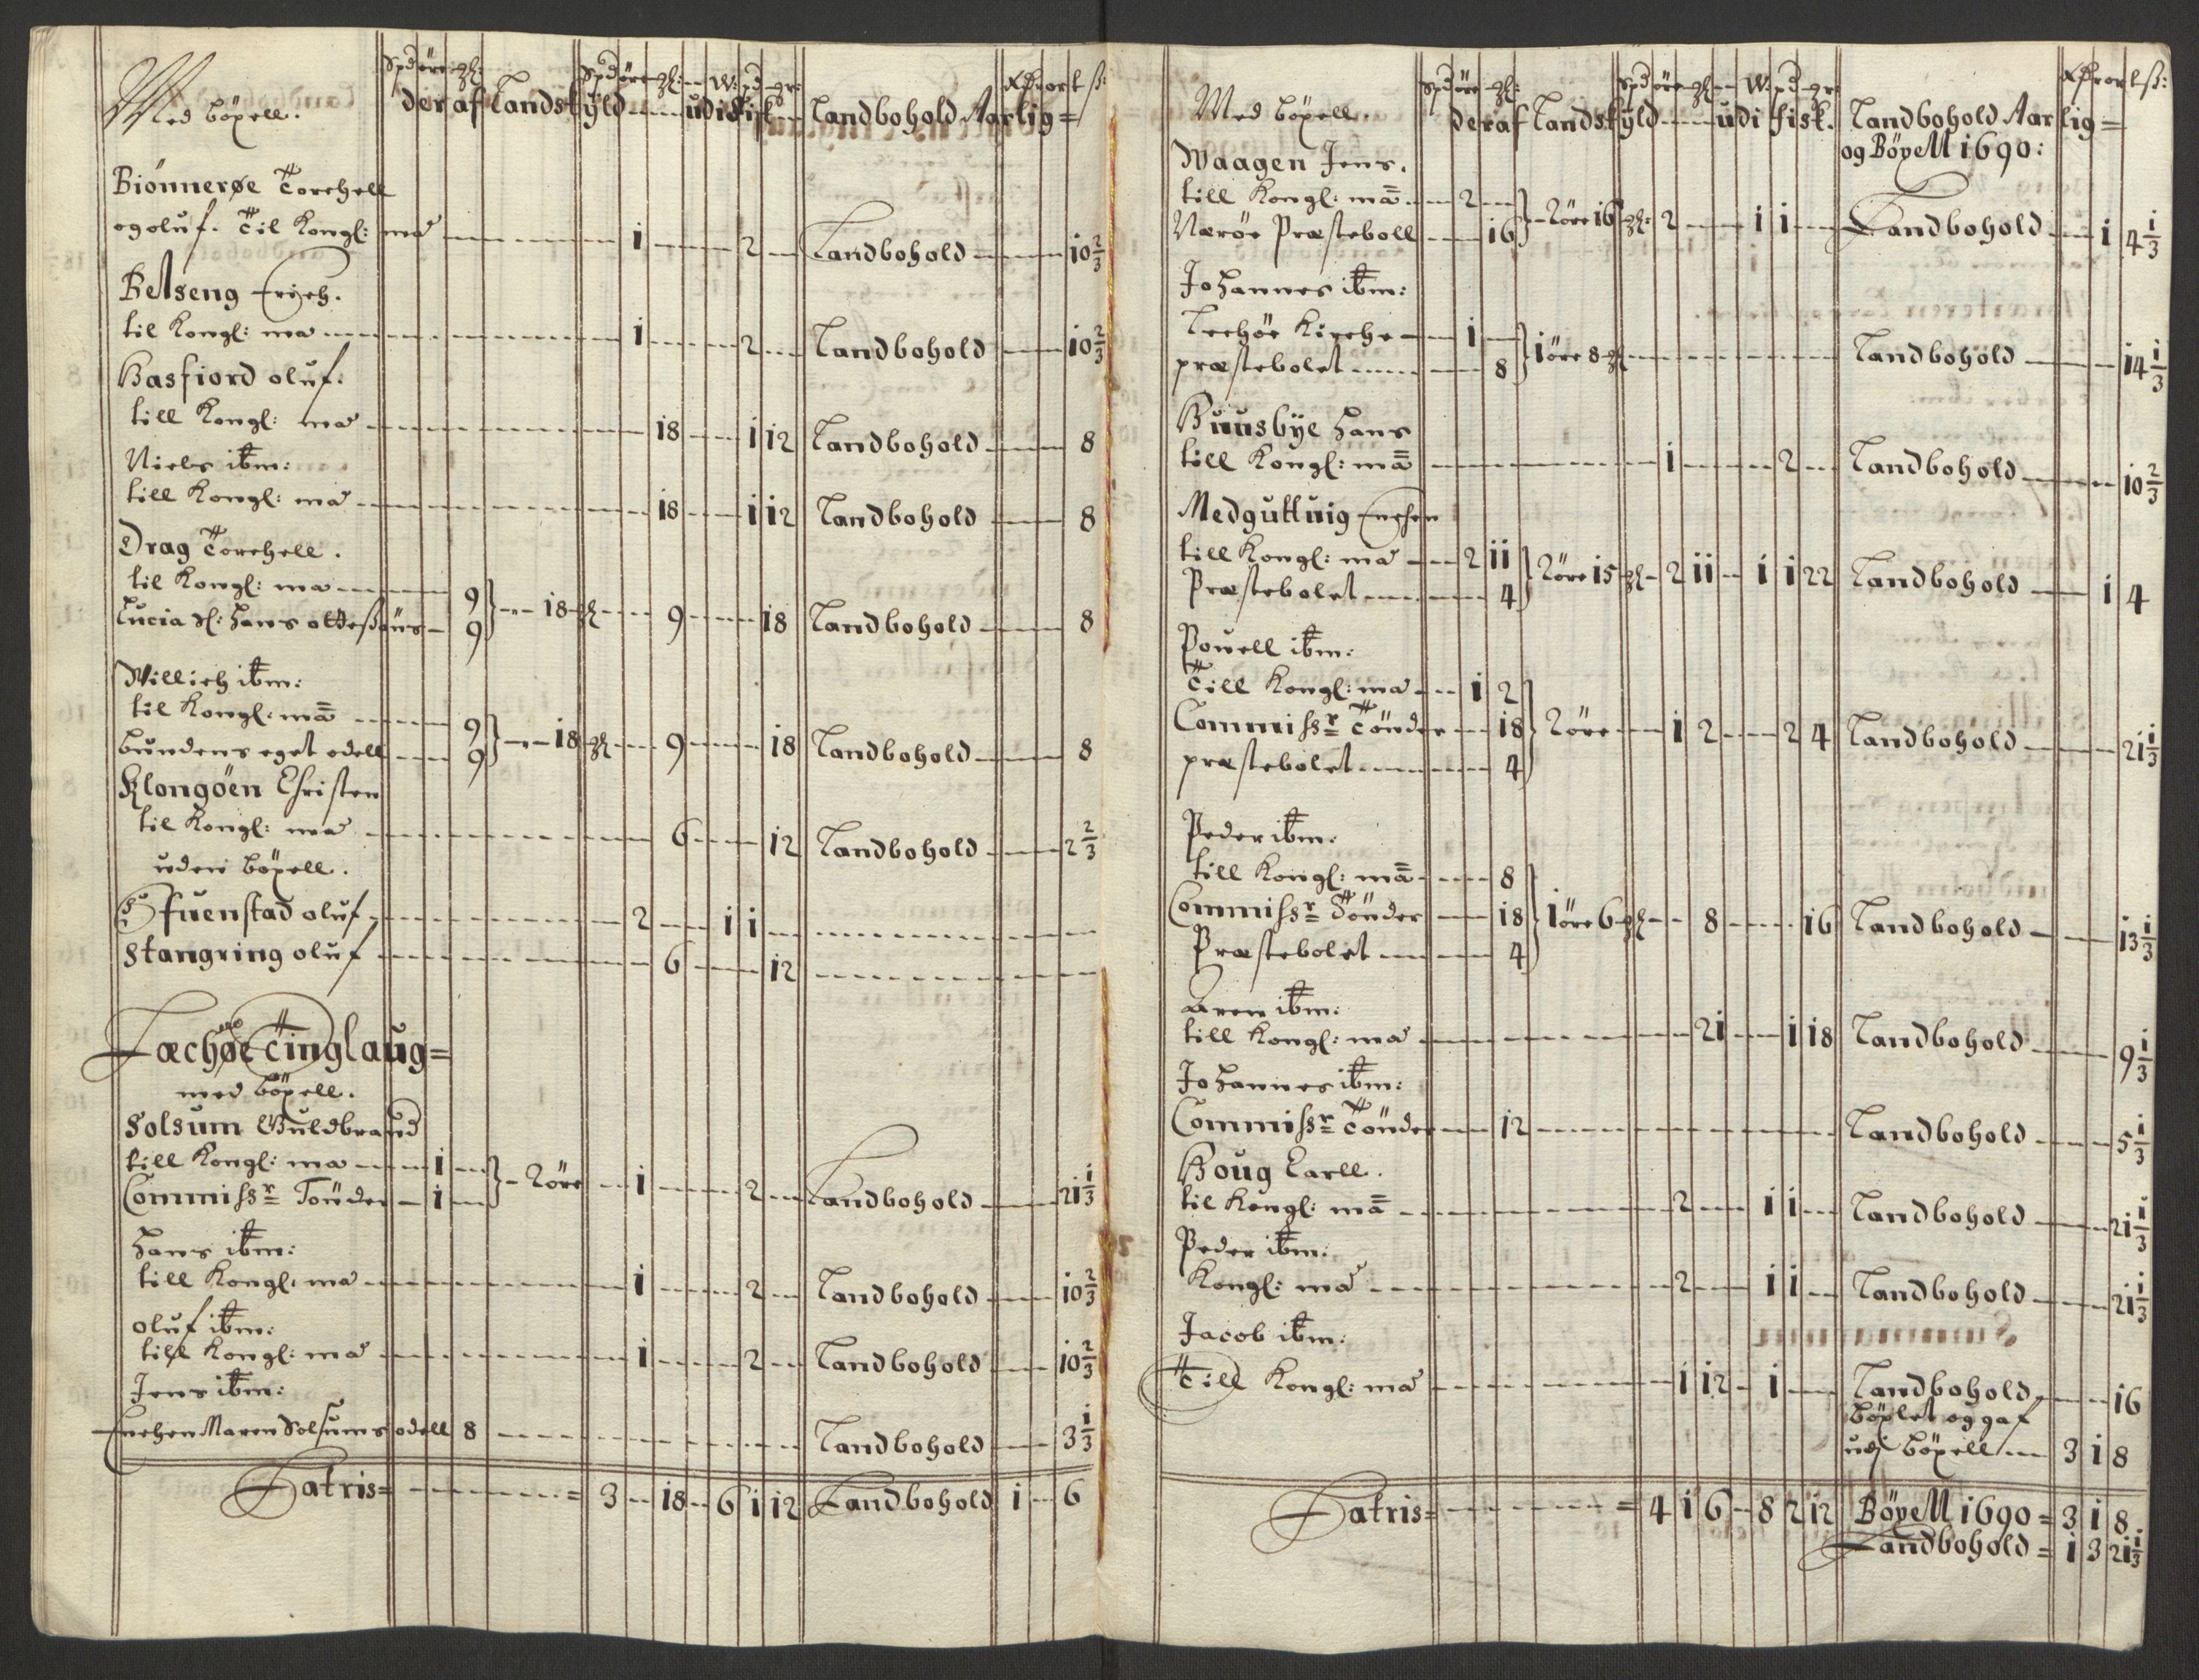 Med böxell. Spd öre ℥: deraf Landskyld Spd öre ℥: W: pd gr: udi Fisk Landbohold Aarlig= Rdr ort ß:
Biönnerøe Torchell
og oluf. Til Kongl: ma 1 2 Landbohold 10 2/3
Belseng Erich.
til Kongl: ma 1 2 Landbohold 10 2/3
Hasfiord oluf.
till Kongl: ma 18 1 12 Landbohold 8
Niels ibm:
till Kongl: ma 18 1 12 Landbohold 8
Drag Torchell.
til Kongl: ma 9
Lucia Sl: Hans 9 } 18 ℥ 9 18 Landbohold 8
Willich ibm:
til Kongl: ma 9
bundens eget odell 9 } 18 ℥ 9 18 Landbohold 8
Klongöen Christen
til Kongl: ma 6 12 Landbohold 2 2/3
uden böxell.
Fuenstad oluf 2 1 1
Stangring oluf 6 12
Læchøe Tinglaug=
med böxell.
Solsum Guldbrand
till Kongl: ma 1
Commissr Tönder 1 } 2 öre 1 2 Landbohold 21 1/3
Hans ibm:
till Kongl: ma 1 2 Landbohold 10 2/3
oluf ibm:
till Kongl: ma 1 2 Landbohold 10 2/3
Jens ibm:
Enchen Maren Solsums odell 8 Landbohold 3 1/3
Latris= 3 18 6 1 12 Landbohold 1 6
Med böxell. Spd öre ℥: deraf Landskyld Spd öre ℥ W: pd gr: udi Fisk. Landbohold Aarlig= Rdr ort ß:
og Böxell 1690:
Waagen Jens.
till Kongl: ma 2
Nærøe Præsteboll 16 } 2 öre 16 ℥: 2 1 1 Landbohold 1 4 1/3
Johannes ibm:
Lechöe Kirche 1
præstebolet 8 } 1 öre 8 ℥ Landbohold 14 1/3
Huusbye Hans
till Kongl: ma 1 2 Landbohold 10 2/3
Medguttuig Enchen
till Kongl: ma 2 11
Præstebolet 4 } 2 öre 15 ℥ 2 11 1 1 22 Landbohold 1 4
Powell ibm:
Till Kongl: ma 1 2
Commissr Tönder 18 } 2 öre 1 2 2 4 Landbohold 21 1/3
præstebolet 4
Peder ibm:
till Kongl: ma 8
Commissr Tönder 18 } 1 öre 6 ℥ 8 16 Landbohold 13 1/3
Præstebolet 4
Aren ibm:
till Kongl: ma 21 1 18 Landbohold 9 1/3
Johannes ibm:
Commissr Tönder 12 Landbohold 5 1/3
Houg Carll.
til Kongl: ma 2 1 1 Landbohold 21 1/3
Peder ibm:
Kongl: ma 2 1 1 Landbohold 21 1/3
Jacob ibm:
Till Kongl: ma 1 12 1 Landbohold 16
böxlet og gaf
udj böxell 3 1 8
Latris= 4 1 6 8 2 12 Böxell 1690= 3 1 8
Landbohold= 1 3 21 1/3